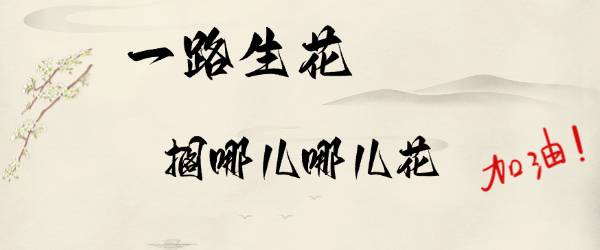 一路生花
掴哪儿哪儿花
加油！